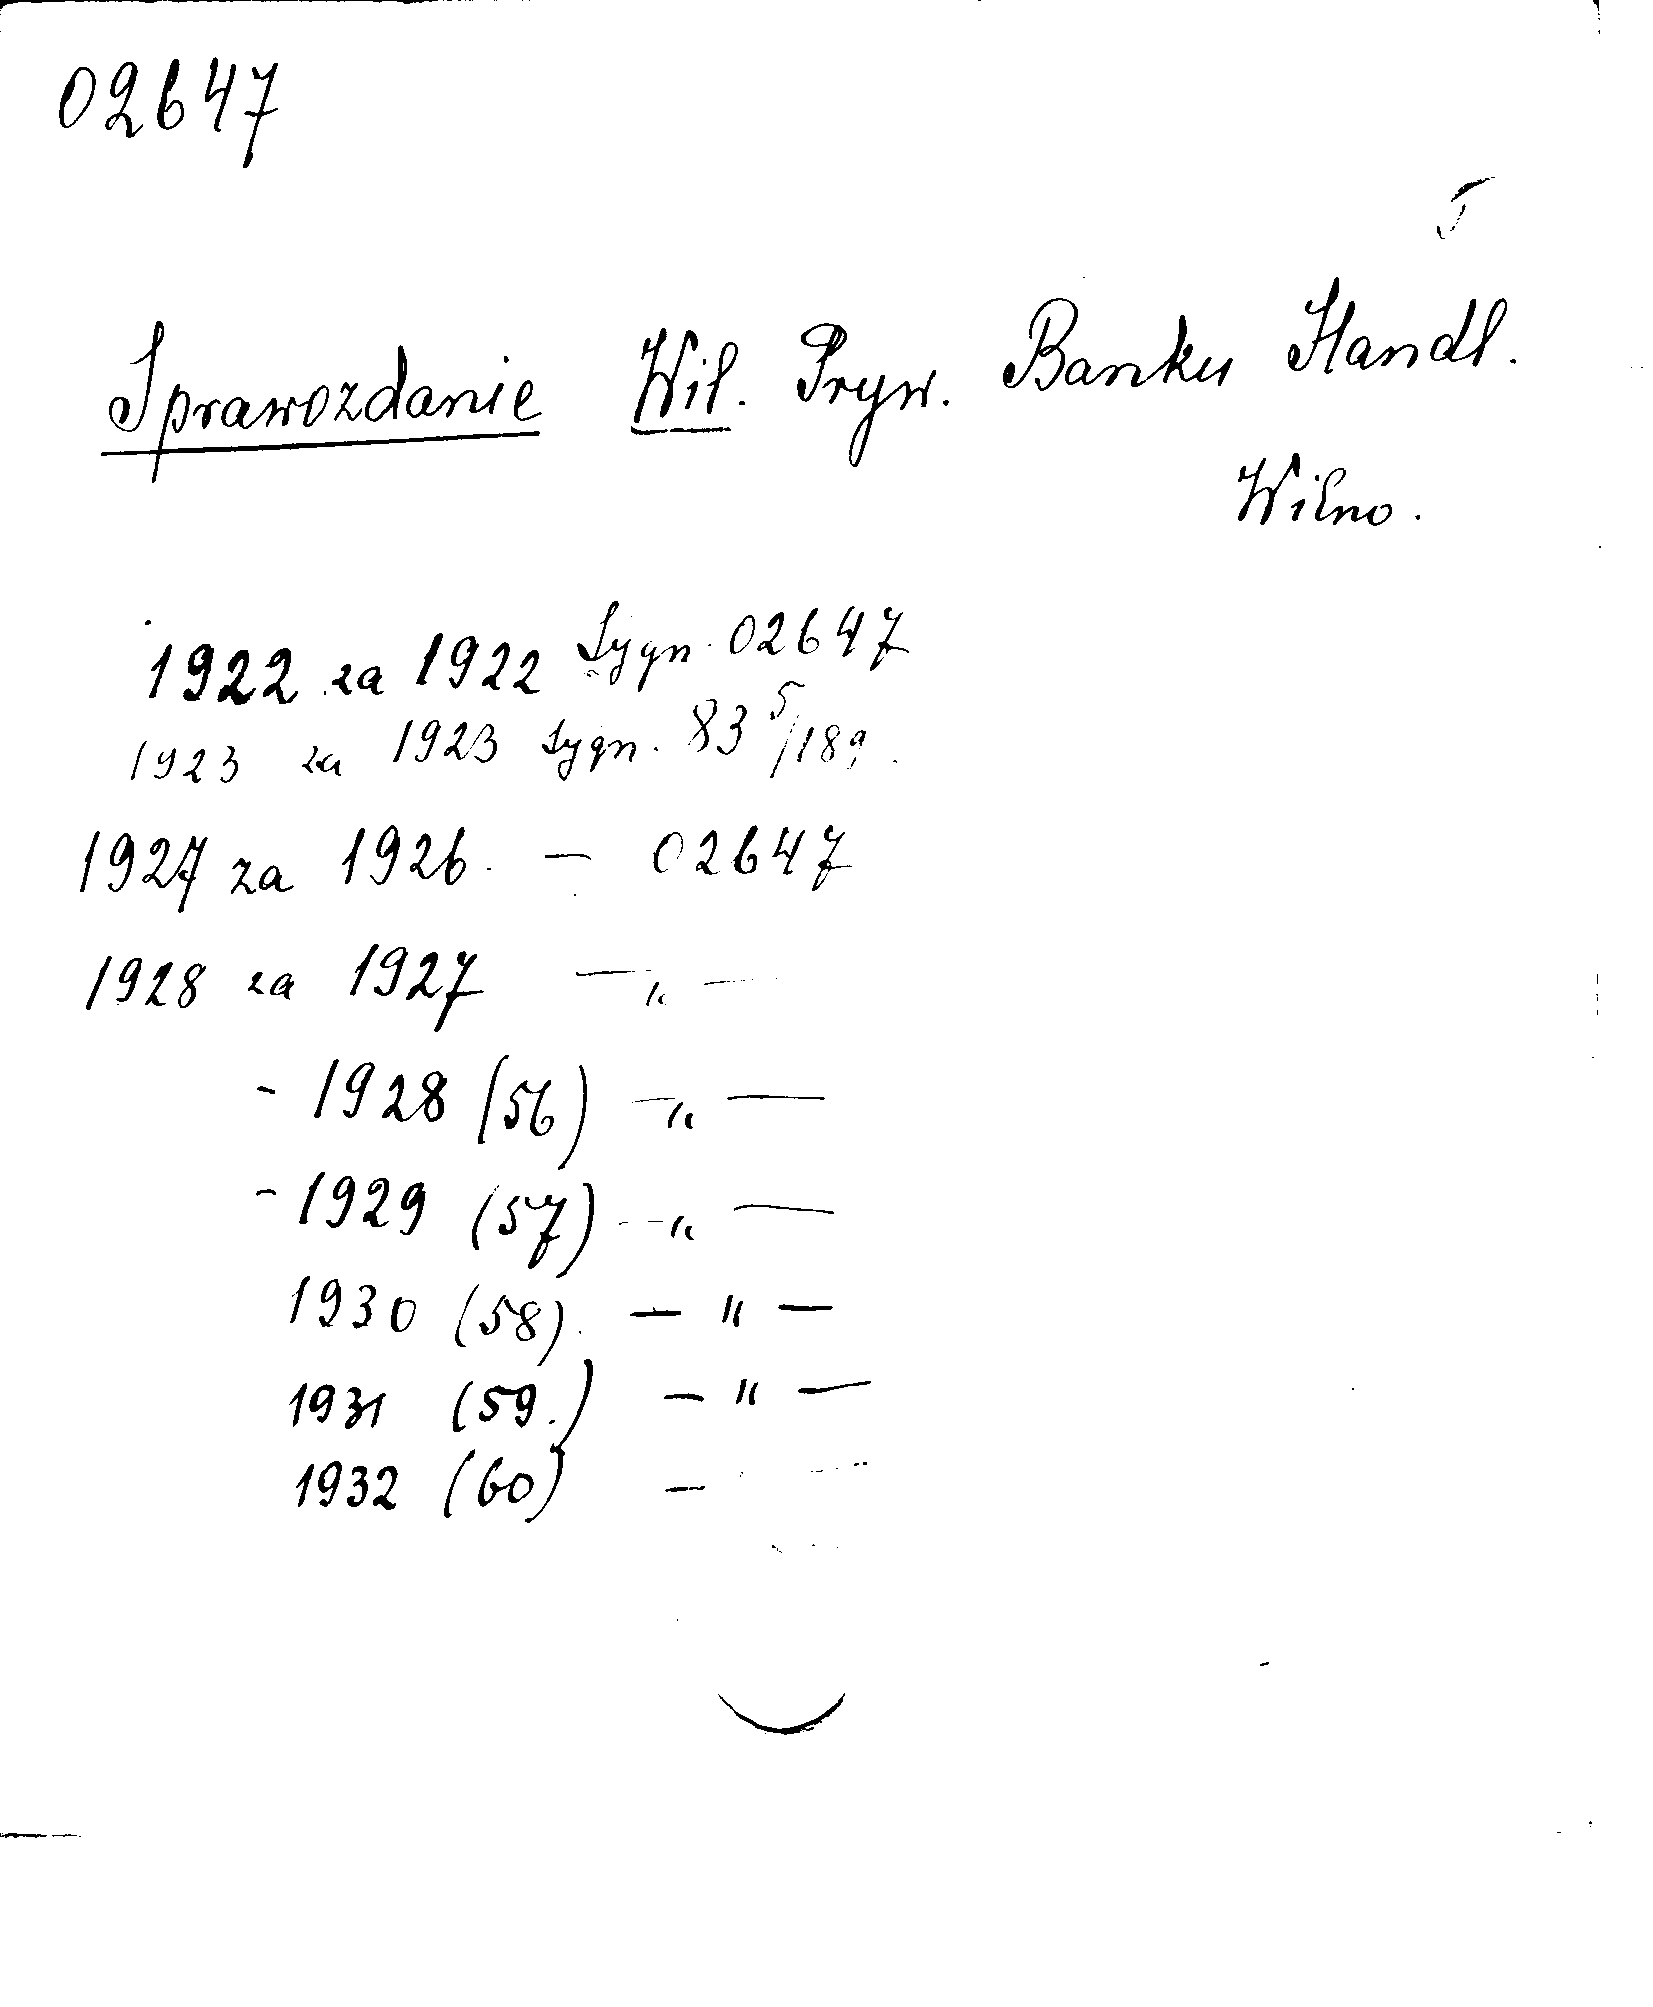 02647
Sprawozdanie Wil. Pryw. Banku Handl.
Wilno.
1922 za 1922 Sygn. 02647
1923 za 1923 Sygn. 83 5/189.
1927 za 1926. — 02647
1928 za 1927 — „ —
- 1928 (56) — „ —
- 1929 (57) - „ —
1930 (58). — " —
1931 (59.) — " —
1932 (60) —